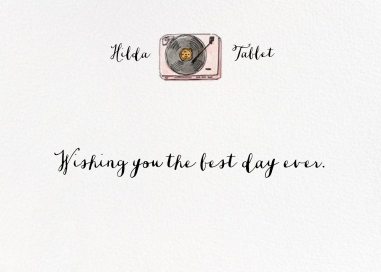 Hilda Tablet
Wishing you the best day ever.